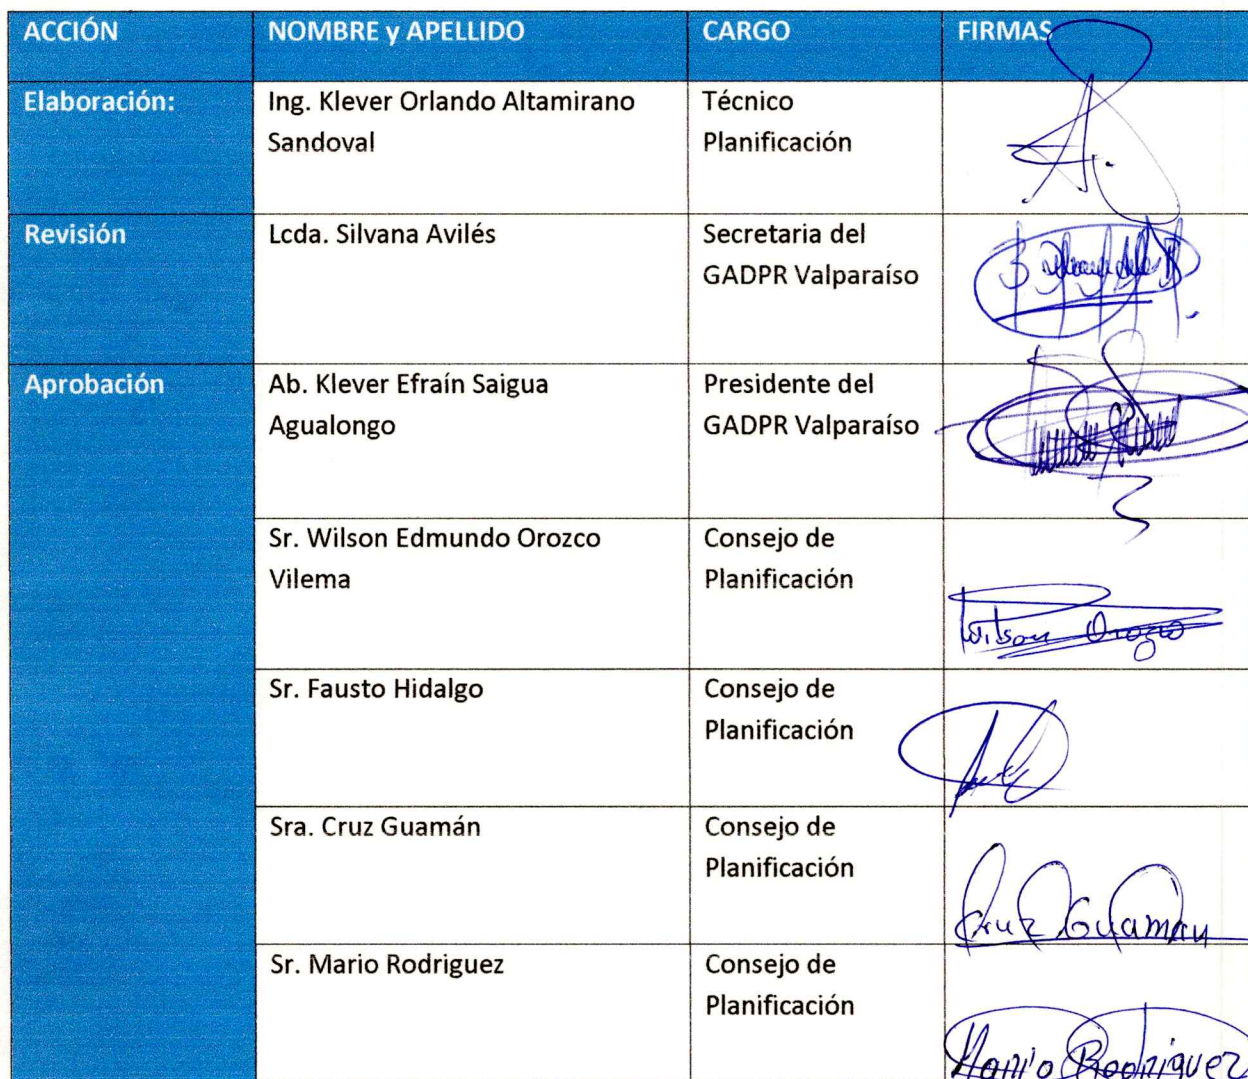 ACCIÓN NOMBRE y APELLIDO CARGO FIRMAS
Elaboración: Ing. Klever Orlando Altamirano Técnico
Sandoval Planificación
Revisión Lcda. Silvana Avilés Secretaria del
GADPR Valparaíso
Aprobación Ab. Klever Efraín Saigua Presidente del
Agualongo GADPR Valparaíso
Sr. Wilson Edmundo Orozco Consejo de
Vilema Planificación
Wilson Orozco
Sr. Fausto Hidalgo Consejo de
Planificación
Sra. Cruz Guamán Consejo de
Planificación
Cruz Guaman
Sr. Mario Rodriguez Consejo de
Planificación
Mario Rodriguez